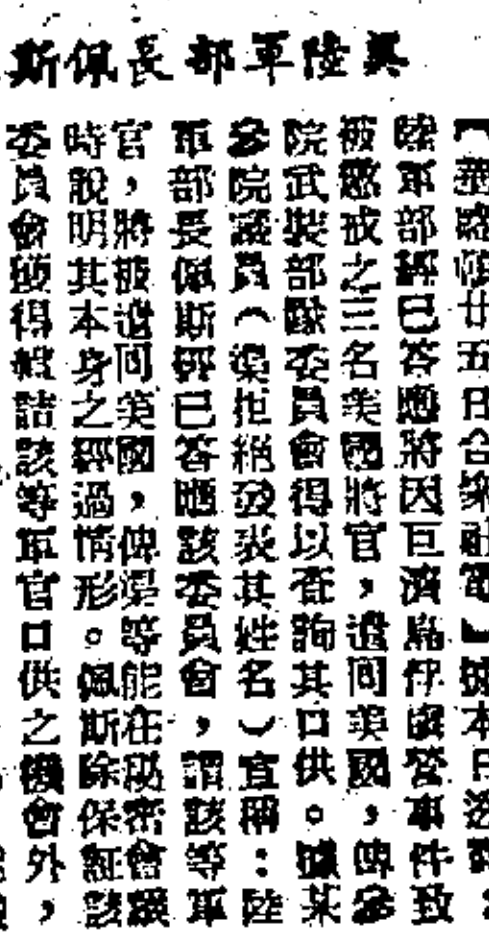 斯佩長部軍陸美
【華盛頓廿五日合衆社電】據本日透
陸軍部經已答應將因巨濟島俘虜營事件致
被懲戒之三名美國將官，遣回美國，俾參
院武裝部隊委員會得以查詢其口供。據某
參院議員（渠拒絕發表其姓名）宣稱：陸
軍部長佩斯經已答應該委員會，謂該等軍
官，將被遣回美國，俾渠等能在秘密會議
時說明其本身之經過情形。佩斯除保証該
委員會獲得盤詰該等軍官口供之機會外，